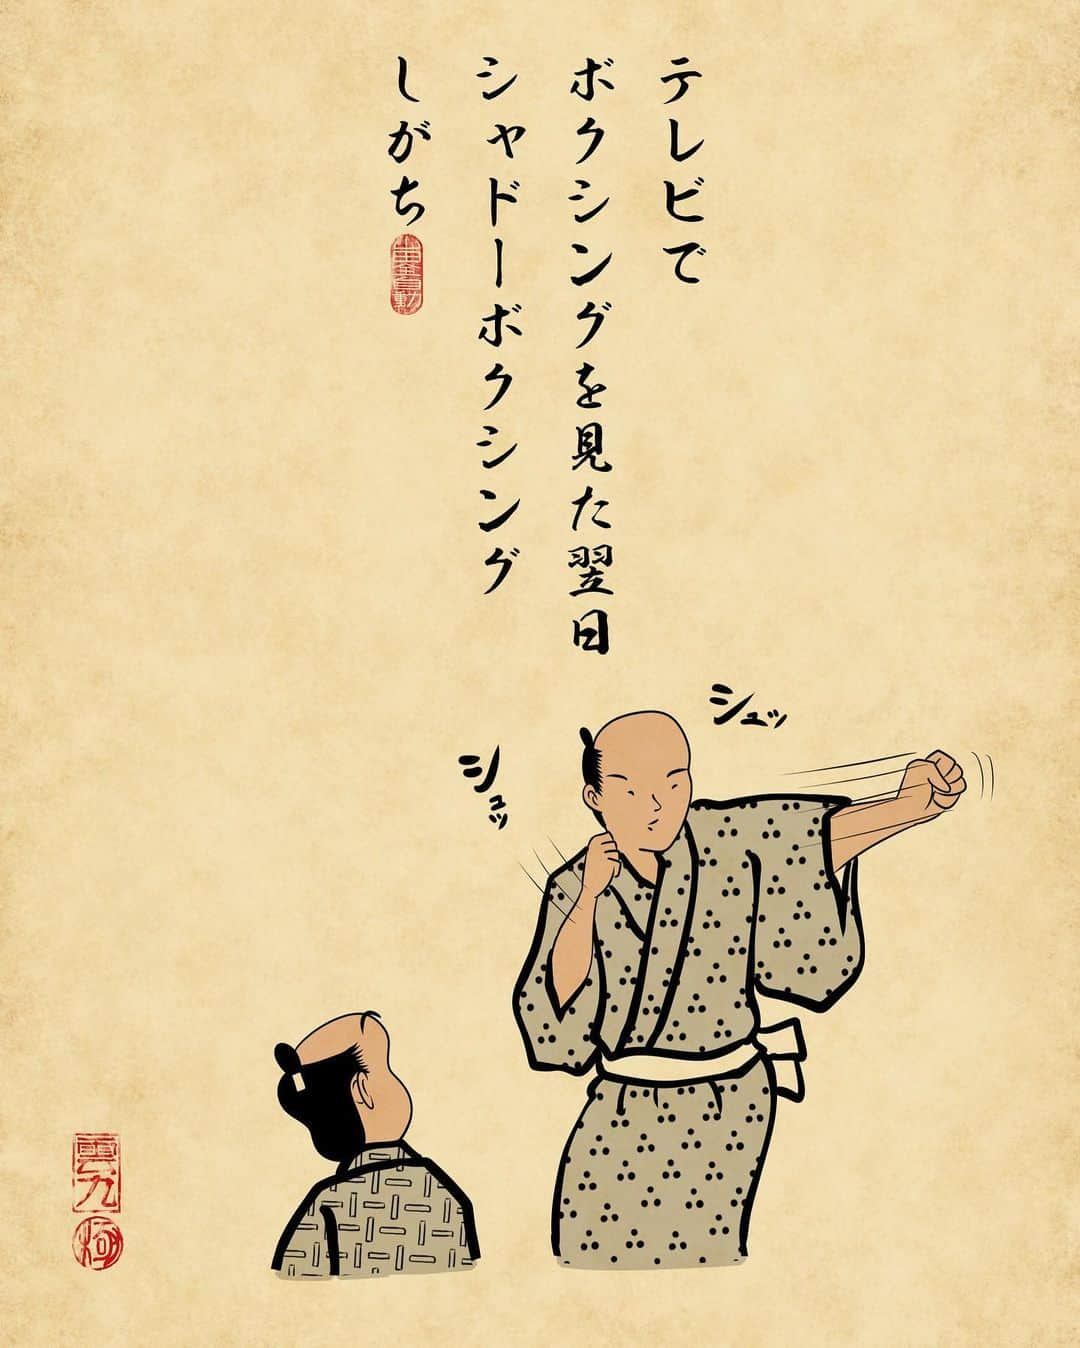 テレビで
ボクシングを見た翌日
シャドーボクシング
しがち
シュッ
シュッ